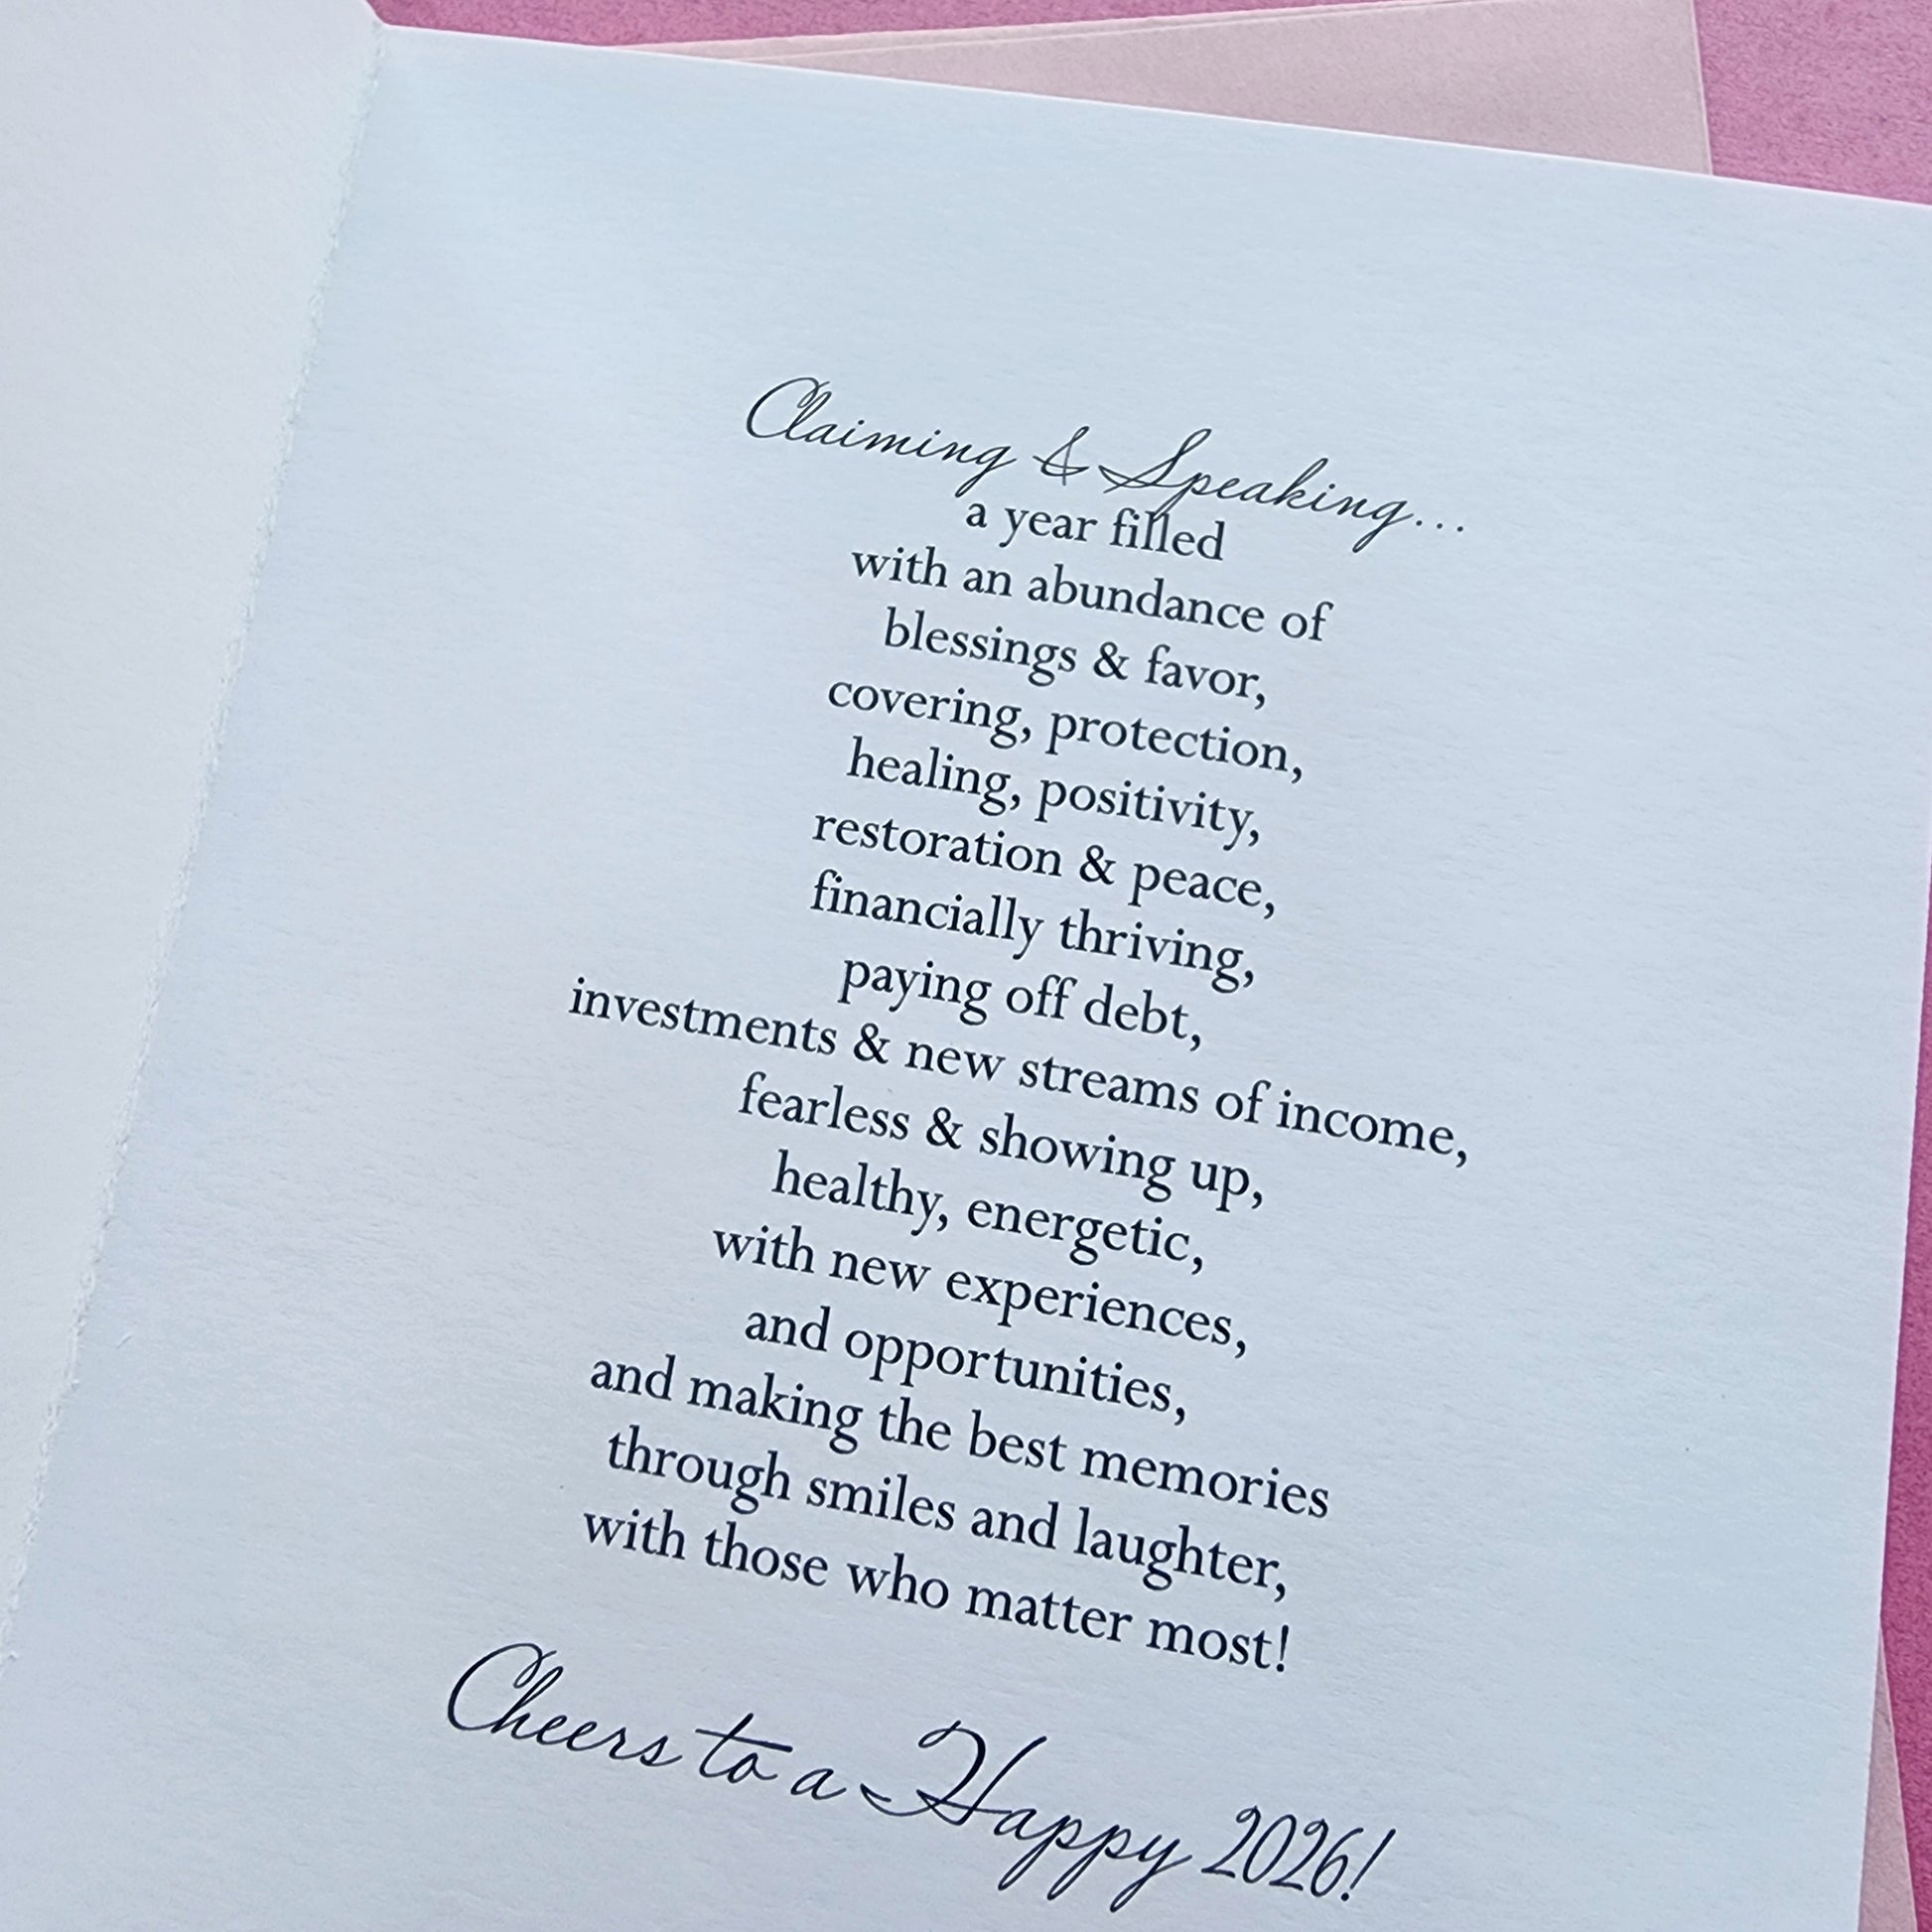 Claiming & Speaking...
a year filled
with an abundance of
blessings & favor,
covering, protection,
healing, positivity,
restoration & peace,
financially thriving,
paying off debt,
investments & new streams of income,
fearless & showing up,
healthy, energetic,
with new experiences,
and opportunities,
and making the best memories
through smiles and laughter,
with those who matter most!
Cheers to a Happy 2026!